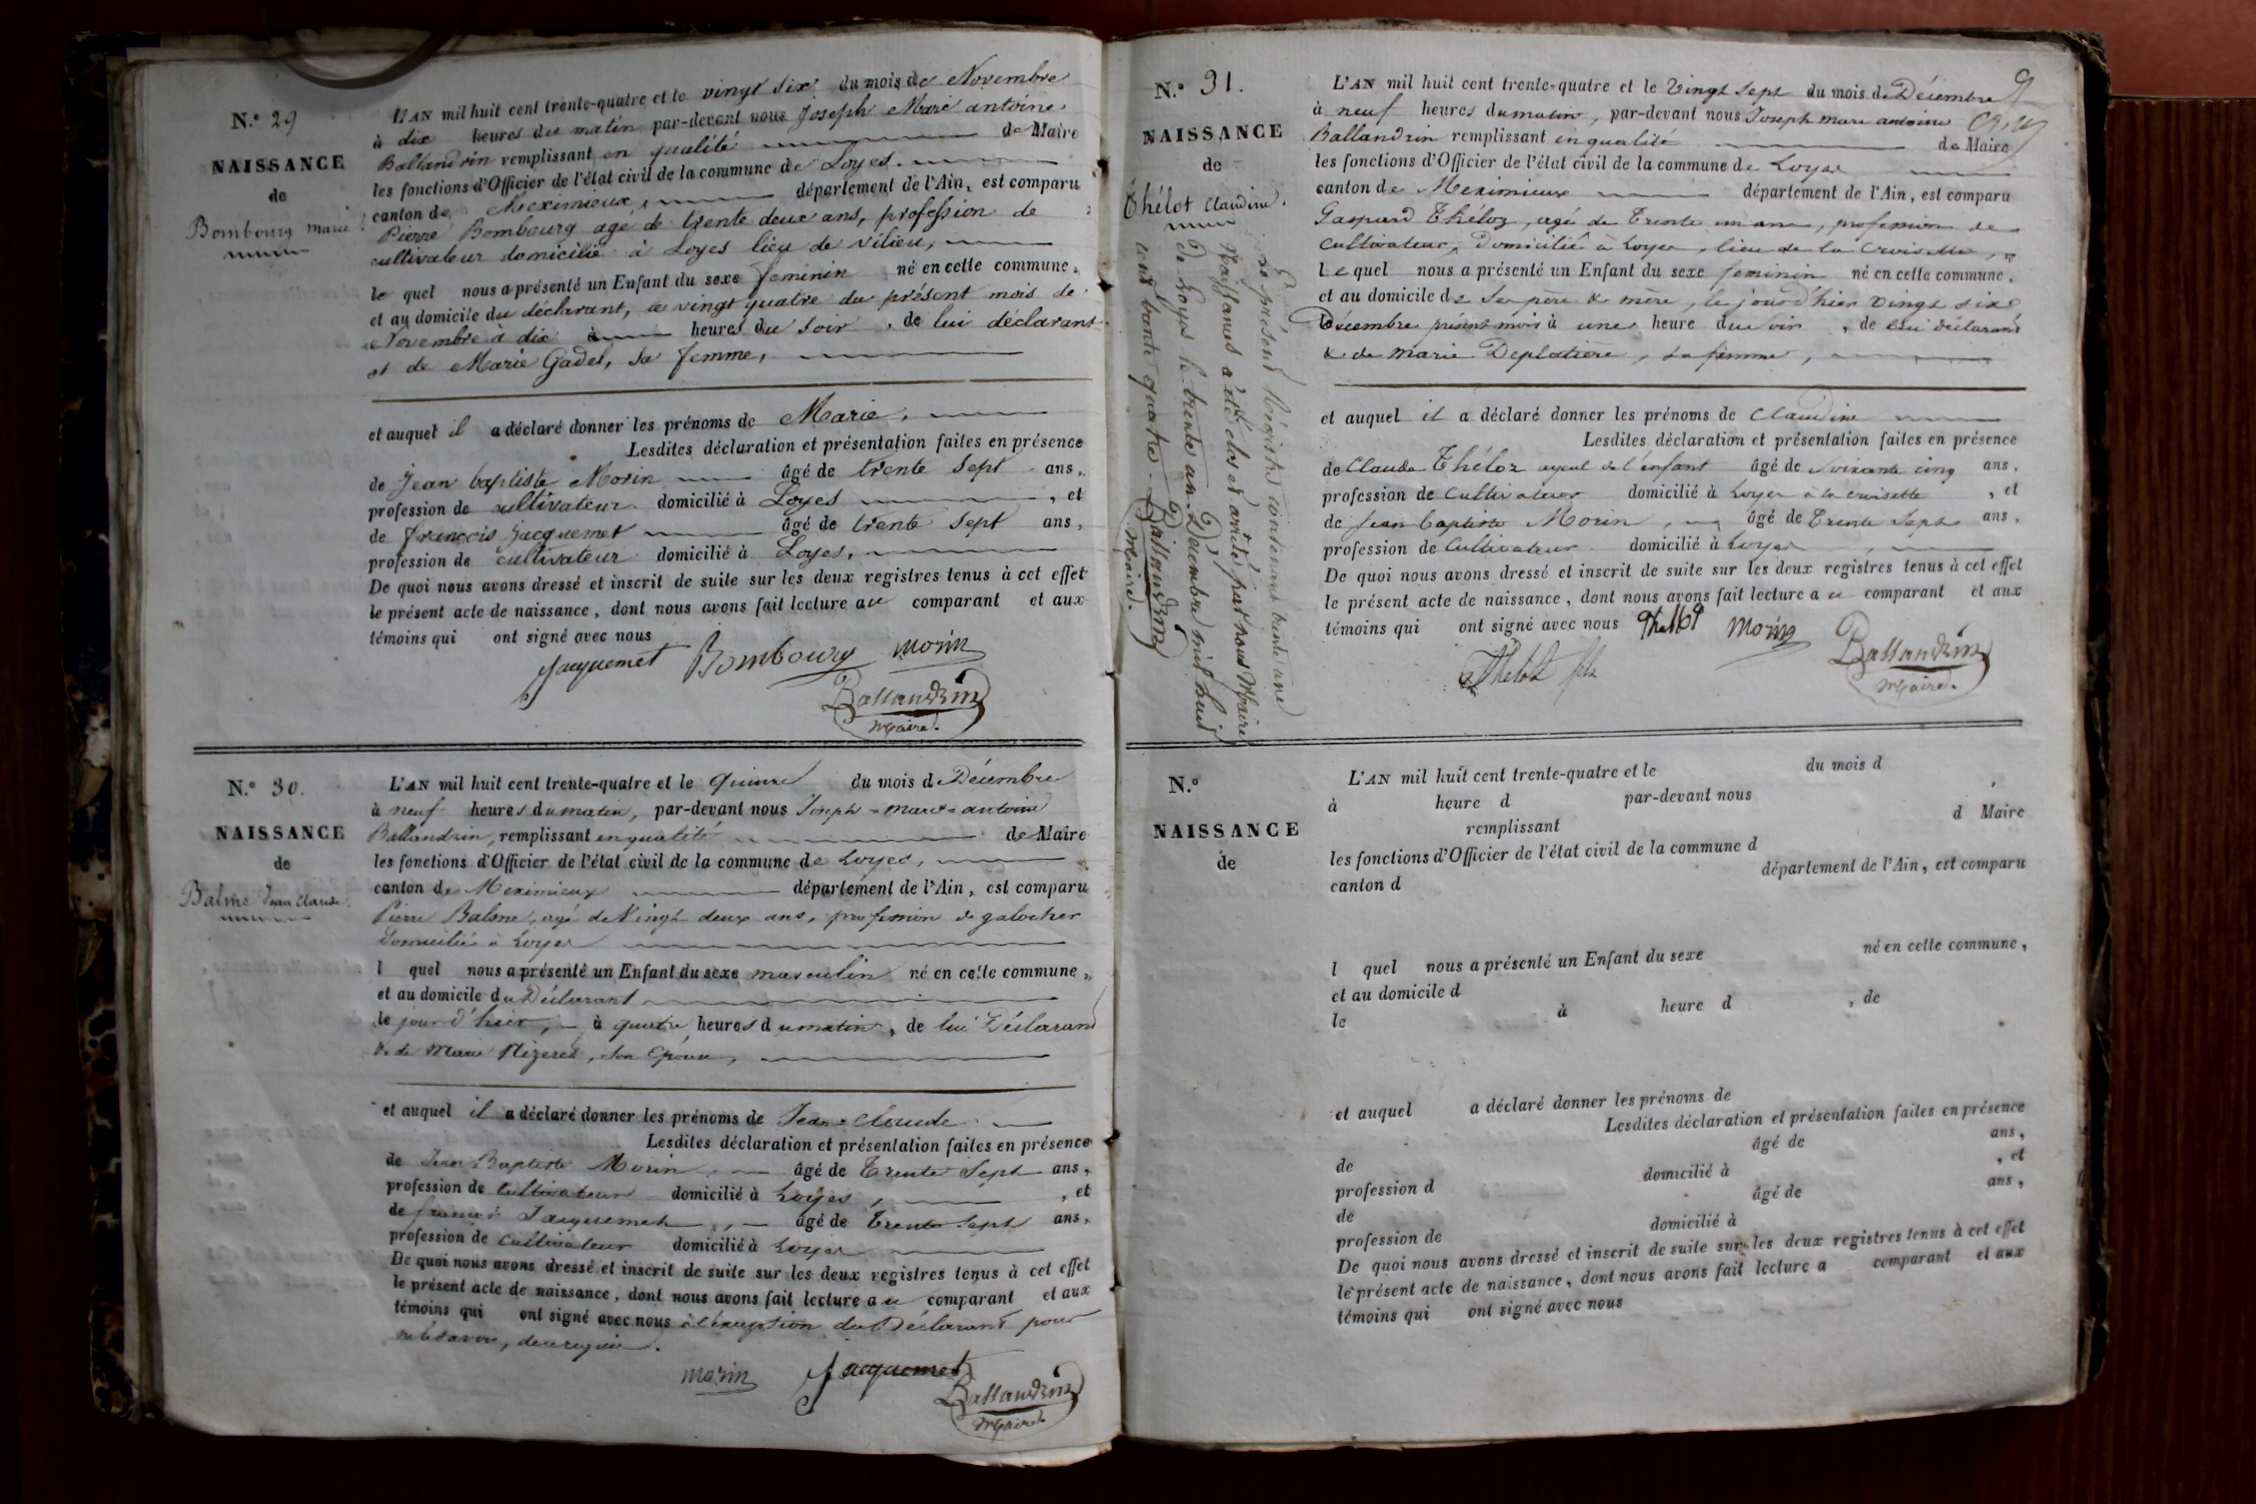 N.º 29
NAISSANCE
de
Bombourg marie
L'AN mil huit cent trente-quatre et le vingt six du mois de Novembre
à dix heures du matin par-devant nous Joseph Marc antoine
Ballandrin remplissant en qualité de Maire
les fonctions d'Officier de l'état civil de la commune de Loyes.
canton de Meximieux, département de l'Ain, est comparu
Pierre Bombourg agé de trente deux ans, profession de
cultivateur domicilié à Loyes lieu de vilieu,
le quel nous a présenté un Enfant du sexe feminin né en cette commune,
et au domicile du déclarant, le vingt quatre du présent mois de
Novembre à dix à heures du soir, de lui déclarant
et de Marie Gadel, sa femme,
et auquel il a déclaré donner les prénoms de Marie,
Lesdites déclaration et présentation faites en présence
de Jean baptiste Morin âgé de trente sept ans,
profession de cultivateur domicilié à Loyes, et
de françois Jacquemet âgé de trente sept ans,
profession de cultivateur domicilié à Loyes,
De quoi nous avons dressé et inscrit de suite sur les deux registres tenus à cet effet
le présent acte de naissance, dont nous avons fait lecture au comparant et aux
témoins qui ont signé avec nous
Jacquemet Bombourg morin
Ballandrin
Maire.
N.º 30.
NAISSANCE
de
Balme Jean Claude.
L'AN mil huit cent trente-quatre et le quinze du mois de Décembre
à neuf heures du matin, par-devant nous Joseph=marc=antoine
Ballandrin, remplissant en qualité de Maire
les fonctions d'Officier de l'état civil de la commune de Loyes,
canton de Meximieux département de l'Ain, est comparu
Pierre Balme, agé de Vingt deux ans, profession de galocher
domicilié à Loyes
l quel nous a présenté un Enfant du sexe masculin né en cette commune,
et au domicile du Déclarant
le jour d'hier, à quatre heures du matin, de lui Déclarant
& de Marie son Epouse,
et auquel il a déclaré donner les prénoms de Jean=Claude
Lesdites déclaration et présentation faites en présence
de Jean Baptiste Morin, âgé de Trente Sept ans,
profession de Cultivateur domicilié à Loyes, et
de françois Jacquemet, âgé de Trente Sept ans,
profession de Cultivateur domicilié à Loyes
De quoi nous avons dressé et inscrit de suite sur les deux registres tenus à cet effet
le présent acte de naissance, dont nous avons fait lecture au comparant et aux
témoins qui ont signé avec nous à l'exception du Déclarant pour
ne le savoir, de ce requis.
morin Jacquemet
Ballandrin
Maire.
9
N.º 31.
NAISSANCE
de
Thélot Claudine.
Le présent Régistre contenant trente une
Naissances a été clos et arrêté par nous Maire
de Loyes le trente un Décembre mil huit
cent trente quatre.
Ballandrin
Maire.
L'AN mil huit cent trente-quatre et le Vingt Sept du mois de Décembre
à neuf heures du matin, par-devant nous Joseph marc antoine
Ballandrin remplissant en qualité de Maire
les fonctions d'Officier de l'état civil de la commune de Loyes
canton de Meximieux département de l'Ain, est comparu
Gaspard Théloz, agé de Trente un ans, profession de
Cultivateur, Domicilié à Loyes, lieu de la Croisette,
Le quel nous a présenté un Enfant du sexe feminin né en cette commune,
et au domicile de Ses père & mère, le jour d'hier vingt six
Décembre présent mois à une heure du soir, de lui déclarant
& de marie Deplatière, sa femme,
et auquel il a déclaré donner les prénoms de Claudine
Lesdites déclaration et présentation faites en présence
de Claude Théloz ayeul de l'enfant âgé de Soixante cinq ans,
profession de Cultivateur domicilié à Loyes à la croisette, et
de Jean baptiste Morin, âgé de Trente Sept ans,
profession de Cultivateur domicilié à Loyes,
De quoi nous avons dressé et inscrit de suite sur les deux registres tenus à cet effet
le présent acte de naissance, dont nous avons fait lecture au comparant et aux
témoins qui ont signé avec nous Thellot Morin
Thelot fils Ballandrin
Maire.
N.º
NAISSANCE
de
L'AN mil huit cent trente-quatre et le du mois d
à heure d par-devant nous
remplissant d Maire
les fonctions d'Officier de l'état civil de la commune d
canton d département de l'Ain, est comparu
l quel nous a présenté un Enfant du sexe né en cette commune,
et au domicile d
le à heure d , de
et auquel a déclaré donner les prénoms de
Lesdites déclaration et présentation faites en présence
de âgé de ans,
profession d domicilié à , et
de âgé de ans,
profession de domicilié à
De quoi nous avons dressé et inscrit de suite sur les deux registres tenus à cet effet
le présent acte de naissance, dont nous avons fait lecture a comparant et aux
témoins qui ont signé avec nous